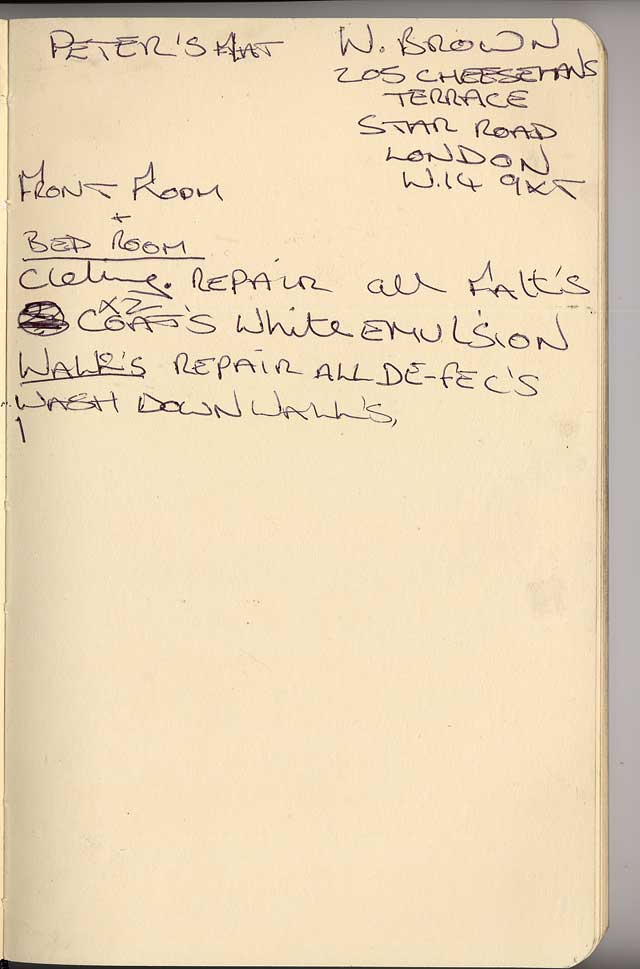 PETER'S FLAT
W. BROWN
205 CHEESEMANS
TERRACE
STAR ROAD
LONDON
W.14 9XT
FRONT ROOM
+
BED ROOM
REPAIR all FALt'S
X2
COAT'S White EMULSION
WALL'S REPAIR ALL DE-FEC'S
WASH DOWN WALL'S,
1